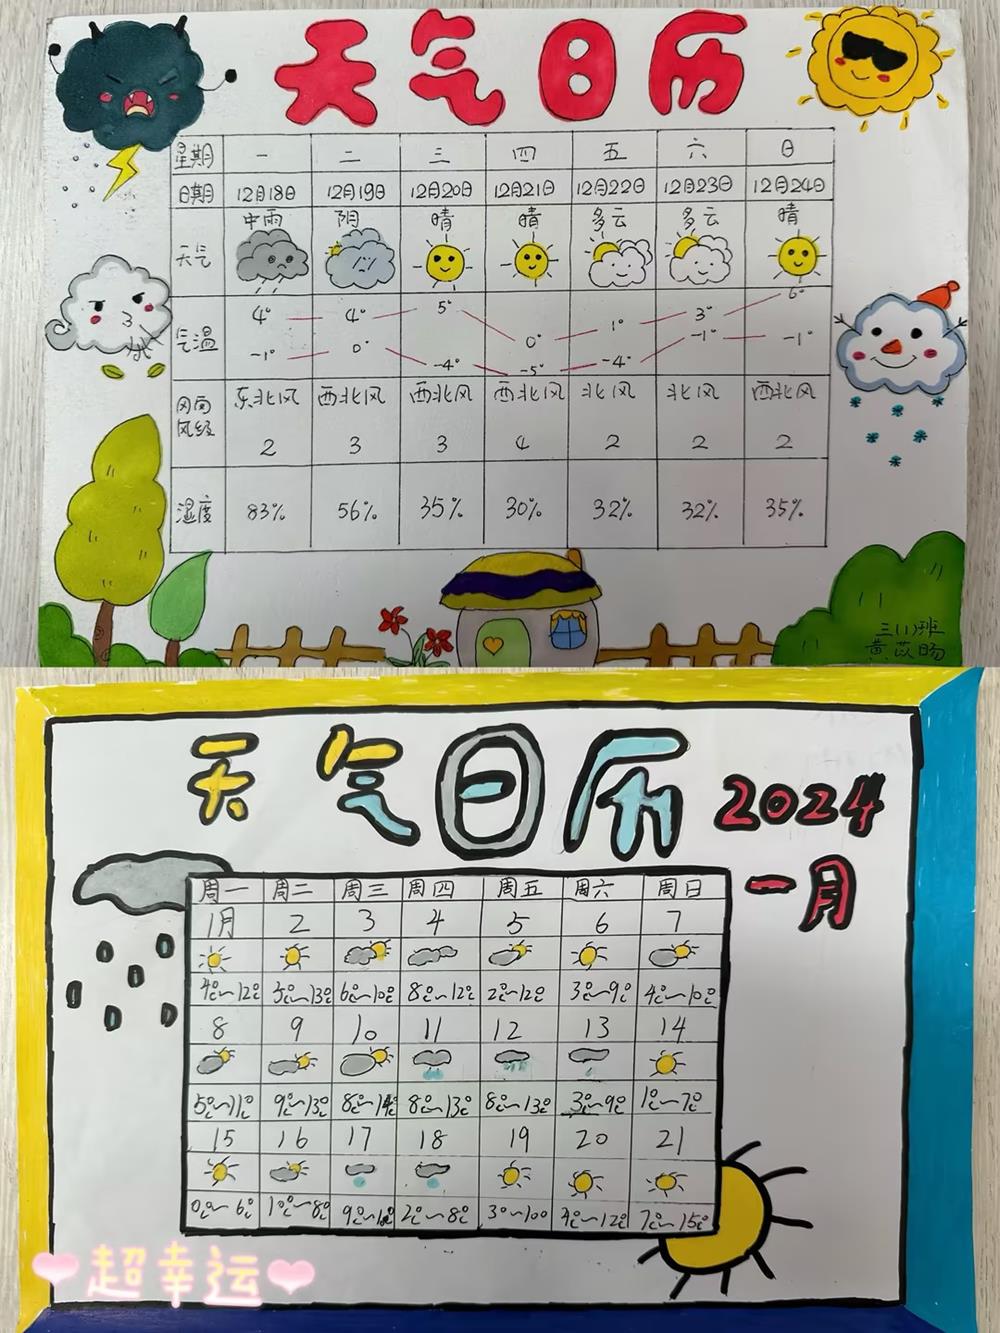 天气日历
星期 一 二 三 四 五 六 日
日期 12月18日 12月19日 12月20日 12月21日 12月22日 12月23日 12月24日
中雨 阴 晴 晴 多云 多云 晴
天气
4° 4° 5° 0° 1° 3° 6°
气温
-1° 0° -4° -5° -4° -1° -1°
风向 东北风 西北风 西北风 西北风 北风 北风 西北风
风级 2 3 3 4 2 2 2
湿度 83% 56% 35% 30% 32% 32% 35%
三(1)班
黄苡旸
天气日历
2024
一月
周一 周二 周三 周四 周五 周六 周日
1月 2 3 4 5 6 7
4℃~12℃ 3℃~13℃ 6℃~10℃ 8℃~12℃ 2℃~12℃ 3℃~9℃ 4℃~10℃
8 9 10 11 12 13 14
5℃~11℃ 9℃~13℃ 8℃~14℃ 8℃~13℃ 8℃~13℃ 3℃~9℃ 1℃~7℃
15 16 17 18 19 20 21
0℃~6℃ 1℃~8℃ 9℃~10℃ 2℃~8℃ 3°~10° 4℃~12℃ 7℃~15℃
超幸运